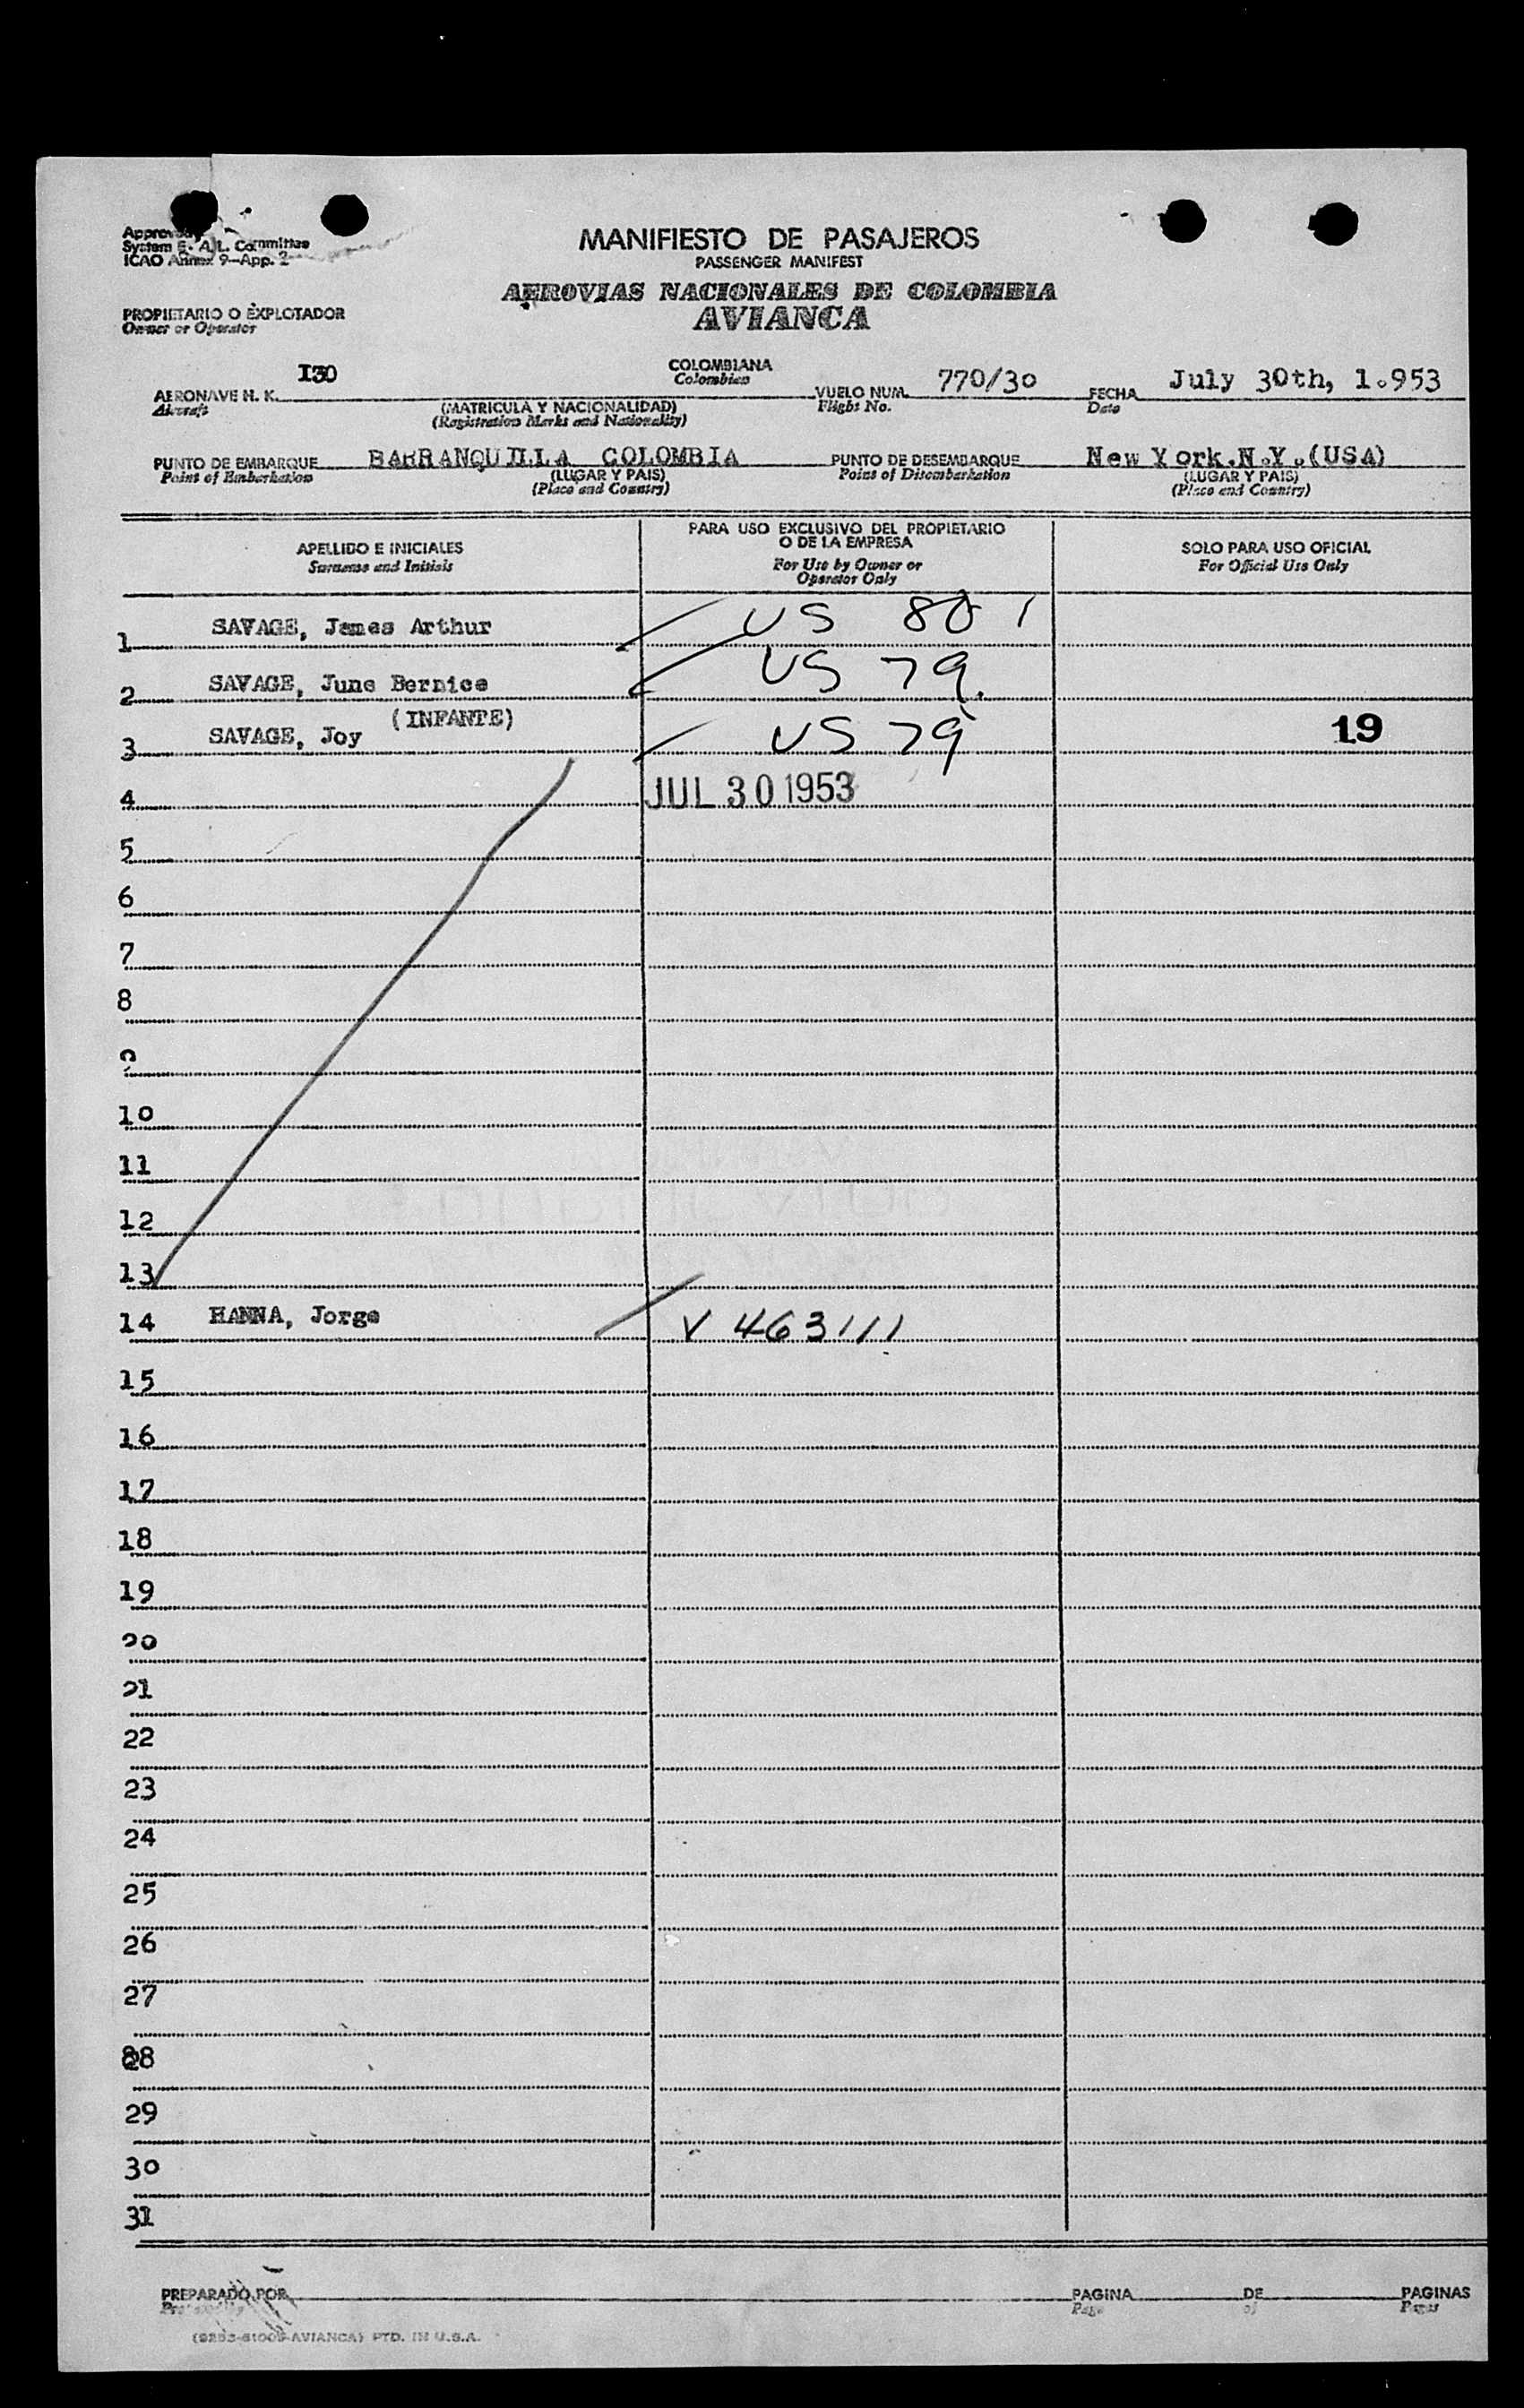 Approved
System E. A. L. Committee
ICAO Annex 9—App. 2
MANIFIESTO DE PASAJEROS
PASSENGER MANIFEST
AEROVIAS NACIONALES DE COLOMBIA
AVIANCA
PROPIETARIO O EXPLOTADOR
Owner or Operator
AERONAVE H. K. I30 COLOMBIANA VUELO NUM. 770/30 FECHA July 30th, 1.953
Aircraft Colombian Flight No. Date
(MATRICULA Y NACIONALIDAD)
(Registration Marks and Nationality)
PUNTO DE EMBARQUE BARRANQUILLA COLOMBIA PUNTO DE DESEMBARQUE New York.N.Y.(USA)
Point of Embarkation (LUGAR Y PAIS) Point of Disembarkation (LUGAR Y PAIS)
(Place and Country) (Place and Country)
APELLIDO E INICIALES
Surname and Initials
PARA USO EXCLUSIVO DEL PROPIETARIO
O DE LA EMPRESA
For Use by Owner or
Operator Only
SOLO PARA USO OFICIAL
For Official Use Only
1 SAVAGE, James Arthur US 80 1
2 SAVAGE, June Bernice US 79.
3 SAVAGE, Joy (INFANTE) US 79 19
4 JUL 30 1953
5
6
7
8
9
10
11
12
13
14 HANNA, Jorge V 463111
15
16
17
18
19
20
21
22
23
24
25
26
27
28
29
30
31
PREPARADO POR PAGINA DE PAGINAS
Page of Pages
AVIANCA) PTD. IN U.S.A.